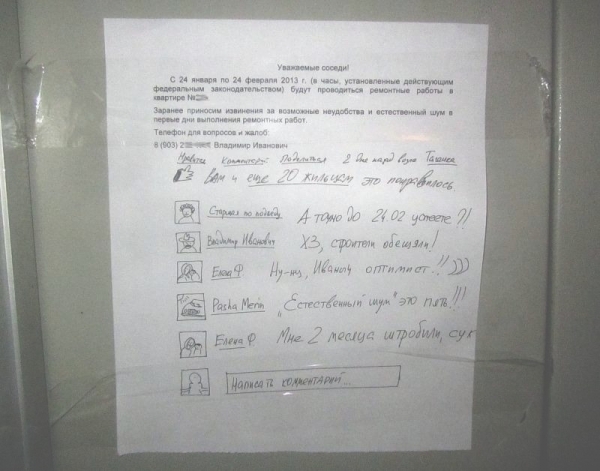 Уважаемые соседи!
С 24 января по 24 февраля 2013 г. (в часы, установленные действующим
федеральным законодательством) будут проводиться ремонтные работы в
квартире №
Заранее приносим извинения за возможные неудобства и естественный шум в
первые дни выполнения ремонтных работ.
Телефон для вопросов и жалоб:
8 (903) 2 Владимир Иванович
Нравится Комментарий Поделиться 2 дня назад возле Таганка
Вам и еще 20 жильцам это понравилось.
Старшая по подъезду А точно до 24.02 успеете?!
Владимир Иванович ХЗ, строители обещали!
Елена Ф. Ну-ну, Иваныч оптимист!!)))
Pasha Merin "Естественный шум" это пять!!!
Елена Ф. Мне 2 месяца штробили, сук
Написать комментарий...